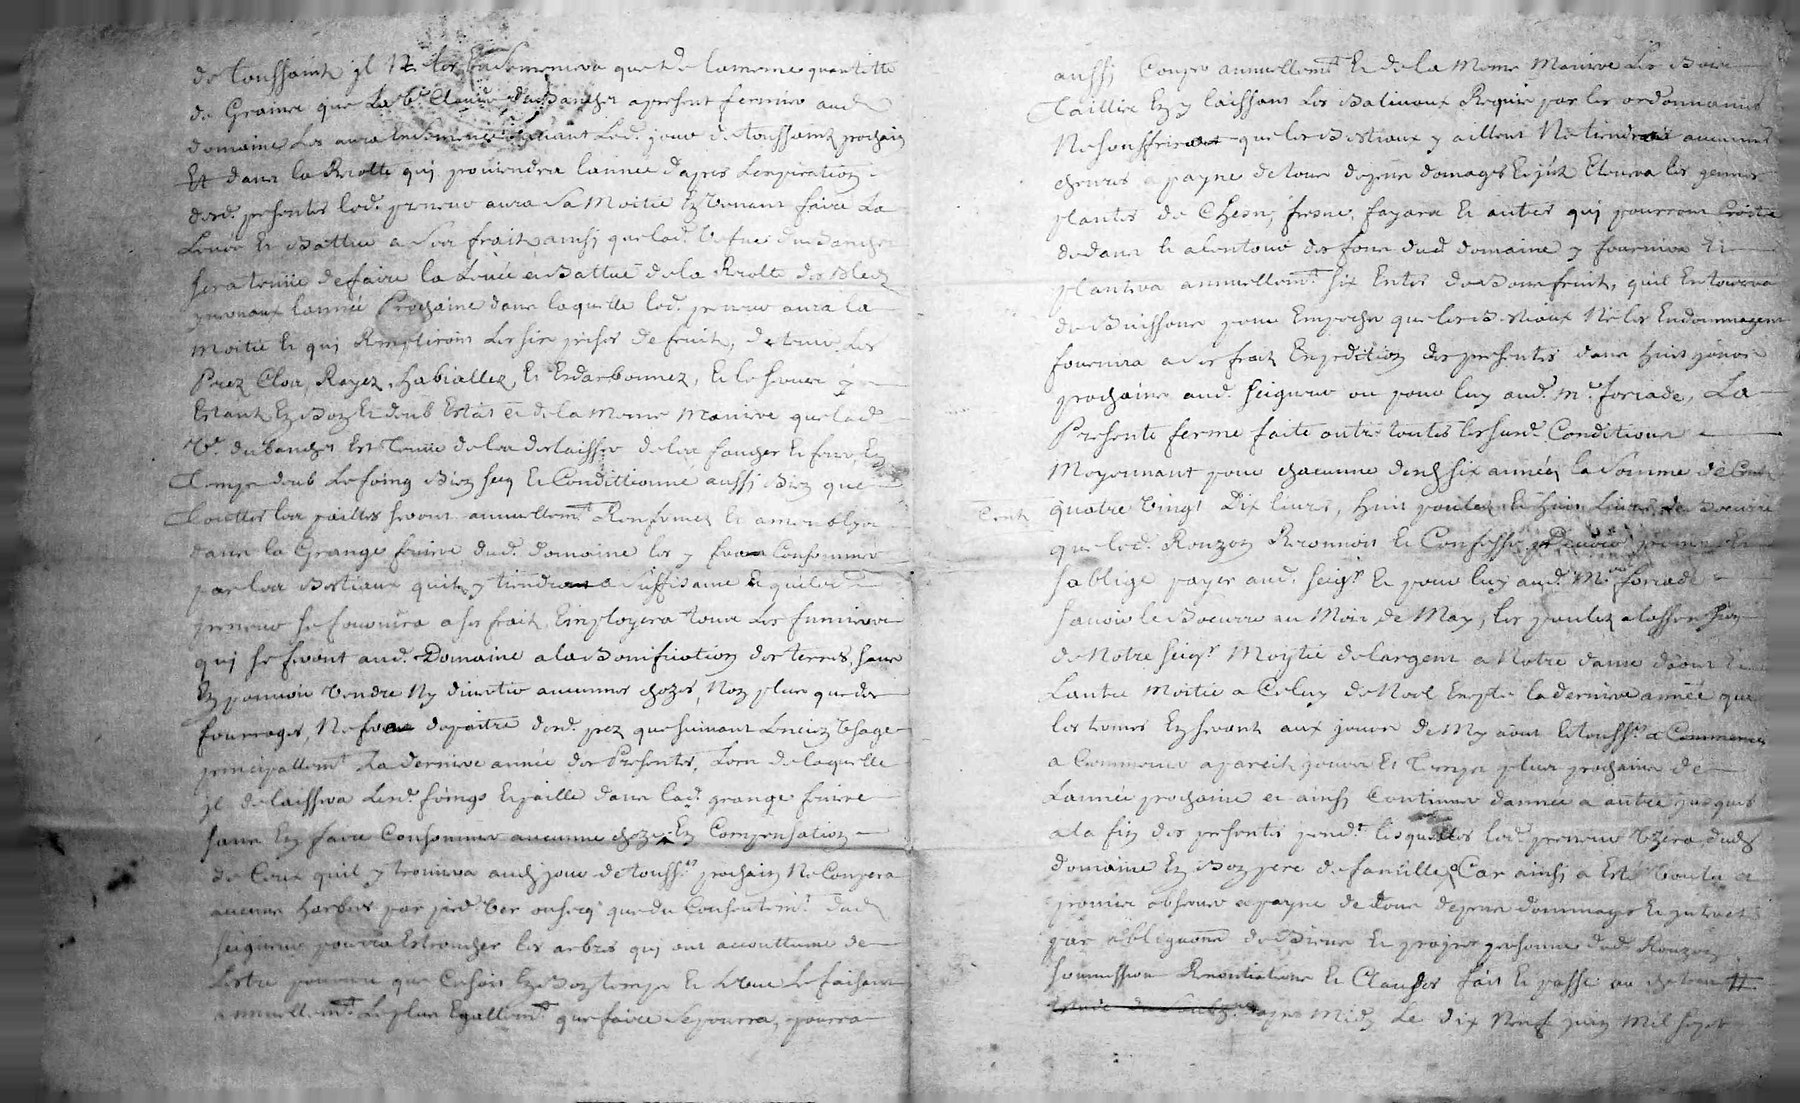 de toussaint jl Ensemensera que de la meme quantitté
de Graines que La Ve. Claude duBanchet apresent fermiere aud.
domaine Les aura Ensemencé avant Led. jour de toussaint prochain
Et dans la Recolte quj proviendra lannee dapres Lexpiration
desd. presentes led. preneur aura Sa Moitié En Venant faire La
Levée Et Battue a Ses frais ainsj que lad. Vefue duBanchet
sera tenüe de faire la Levée et Battue de la Recolte des Bleds
yvernaux Lannée Prochaine dans laquelle led. preneur aura la
Moitié et quj Rempliront Les sixe prises de fruits, de tous Les
Prez Clos, Rayes, habialles, Et Esdarbonnez, Et le fourr
Estant En Bon Et doub Estat et de la Meme Maniere que lad.
Ve. dubanchet Est Tenüe de les deslaisser de les faucher Et ferer, En
Temps doub Le foing Bien secq et Conditionné aussj Bien que
Touttes les pailles seront annuellemt. Renfermez et amenobler
dans la Grange feniere dud. domaine les y fera Consommer
par les Bestiaux quil y tiendra a Suffisance Et que led.
preneur se fournira a ses frais, Employera tous Les fumieres
quj se feront aud. Domaine a la Bonifiation des terres, sans
En pouvoir Vendre Ny divertir aucunnes chozes, Non plus que des
fourrages, Ne fera depaitre desd. prez que suivant Lencien Vsage
principallemt. La derniere année des Presentes, Lors de laquelle
jl delaissera Lesd. foings Et paille dans lad. grange feniere
sans En faire Consommer aucunne choze En Compensation
de Ceux quil y trouvera audj jour de touss.nt prochain Ne Coupera
aucuns harbres par pied Ver ou secq que du Consentemt. dud.
seigneur pourra Estroncher les arbres quj ont accouttumé de
Lestre pourveu que Ce soit En Bon temps et Lune Le faisant
annuellemt. Le plus Egallemt. que faire Se pourra, pourra
aussj Couper annuellemt. Et de la Meme Maniere Les Bois
Taillire En y laissant Les Baliveaux Requis par les ordonnances
Ne souffrira que les Bestiaux y aillent Ne tiendra aucunnes
chevres a payne de tous depens domages Et jnt. Elevera les jeunes
plantes de Chesne, fresne, fayard Et autres quj pourront Croitre
dedans Et alentour des fons dud. domaine y fournira Et
plantera annuellemt. six Entes de Bons fruits, quil Entourera
de Buissons pour Empecher que les Bestiaux Ne les Endommagent
fournira a ses frais Expedition des presentes dans huit jours
prochains aud. seigneur ou pour luy aud. Mr. foriade, La
Presente ferme faite outre toutes les susd. Conditions
Moyennant pour chacunne desd. six années la Somme de Cent
Cent
quatre Vingt Dix livres, huit poulets Et huit Livres de Beurre
que led. Rouzon Reconnoit Et Confesse Devoir promet Et
soblige payer aud. seigr. Et pour luy aud. Mr. foriade
savoir le Beurre au Mois de May, les poulets a lassension
de Notre seigr. Moytié de largent a Notre dame daout Et
Lautre Moitié a Celuy de Noel Excepté la derniere année que
les termes En seront aux jours de May aout Et touss.t a Commencer
a Commencer a pareils jours Et Temps plus prochains de
Lannée prochaine et ainsj Continuer dannée a autre jusques
a la fin des presentes pendt. lesquelles led. preneur Vzera dud.
domaine En Bon pere de famille Car ainsj a Esté Voulu et
promis observer a payne de tous depens dommages Et jnterets
par obligation de Biens Et propre personne dud. Rouzon
soumission Renontiations Et Clauses fait Et passé au chateau
apres Midy Le dix Neuf juin Mil sept